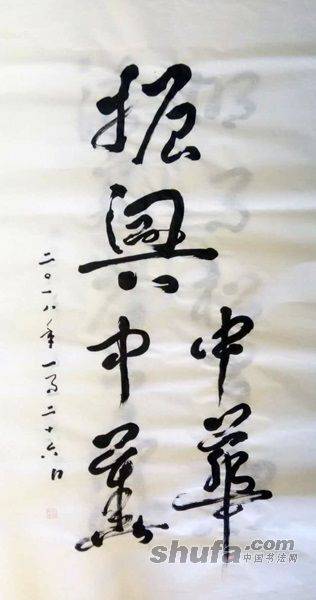 振興
中華
中
二〇一八年一月二十六日
shufa.com
中国书法网